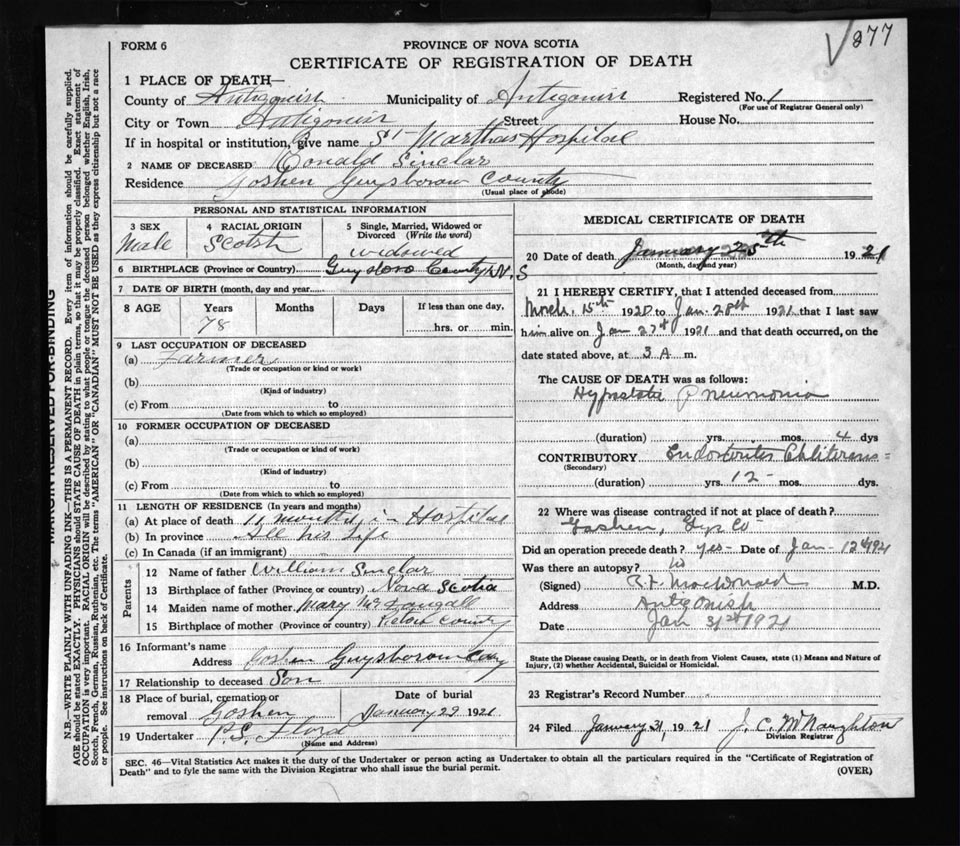 277
FORM 6
PROVINCE OF NOVA SCOTIA
CERTIFICATE OF REGISTRATION OF DEATH
1 PLACE OF DEATH—
County of Antigonish Municipality of Antigonish Registered No. 1
(For use of Registrar General only)
City or Town Antigonish Street House No.
If in hospital or institution, give name St Marthas Hospital
2 NAME OF DECEASED Ronald Sinclar
Residence Goshen Guysborow County
(Usual place of abode)
PERSONAL AND STATISTICAL INFORMATION
3 SEX 4 RACIAL ORIGIN 5 Single, Married, Widowed or
Divorced (Write the word)
Male Scotsh widowed
6 BIRTHPLACE (Province or Country) Guysboro County N. S
7 DATE OF BIRTH (month, day and year)
8 AGE Years Months Days If less than one day,
78 hrs. or min.
9 LAST OCCUPATION OF DECEASED
(a) Farmer
(Trade or occupation or kind or work)
(b)
(Kind of industry)
(c) From to
(Date from which to which so employed)
10 FORMER OCCUPATION OF DECEASED
(a)
(Trade or occupation or kind of work)
(b)
(Kind of industry)
(c) From to
(Date from which to which so employed)
11 LENGTH OF RESIDENCE (In years and months)
(a) At place of death 11 months in Hospital
(b) In province All his Life
(c) In Canada (if an immigrant)
Parents
12 Name of father William Sinclar
13 Birthplace of father (Province or country) Nova Scotia
14 Maiden name of mother Mary
15 Birthplace of mother (Province or country) County
16 Informant's name
Address Goshen Guysborow
17 Relationship to deceased Son
18 Place of burial, cremation or Date of burial
removal Goshen January 29 1921
19 Undertaker P.S. Floyd
(Name and Address)
MEDICAL CERTIFICATE OF DEATH
20 Date of death January th 1921
(Month, day and year)
21 I HEREBY CERTIFY, that I attended deceased from
March 15th 1920 to Jan. 28th 1921 that I last saw
him alive on Jan 27th 1921 and that death occurred, on the
date stated above, at 3 A m.
The CAUSE OF DEATH was as follows:
Hypostatic Pneumonia
(duration) yrs. mos. 4 dys
CONTRIBUTORY
(Secondary)
(duration) yrs. 12 - mos. dys.
22 Where was disease contracted if not at place of death?
Goshen, Guys Co
Did an operation precede death? yes - Date of Jan - 12th 1921
Was there an autopsy? No
(Signed) R.F. MacDonald M.D.
Address Antigonish
Date Jan 31st 1921
State the Disease causing Death, or in death from Violent Causes, state (1) Means and Nature of
Injury, (2) whether Accidental, Suicidal or Homicidal.
23 Registrar's Record Number
24 Filed January 31, 1921 J. C. McNaughton
Division Registrar
SEC. 46—Vital Statistics Act makes it the duty of the Undertaker or person acting as Undertaker to obtain all the particulars required in the "Certificate of Registration of
Death" and to fyle the same with the Division Registrar who shall issue the burial permit.
(OVER)
MARGIN RESERVED FOR BINDING
N.B.—WRITE PLAINLY WITH UNFADING INK—THIS IS A PERMANENT RECORD. Every item of information should be carefully supplied.
AGE should be stated EXACTLY. PHYSICIANS should STATE CAUSE OF DEATH in plain terms, so that it may be properly classified. Exact statement of
OCCUPATION is very important. RACIAL ORIGIN will be described by stating to what people or tongue the deceased person belonged whether English, Irish,
Scotch, French, German, Russian, Ruthenian, etc. The terms "AMERICAN" OR "CANADIAN" MUST NOT BE USED as they express citizenship but not a race
or people. See instructions on back of Certificate.